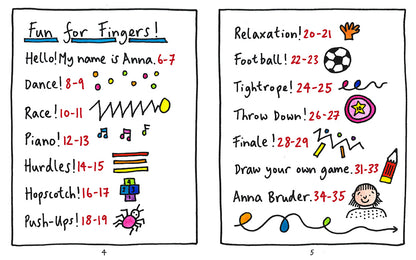 Fun for Fingers!
Hello! My name is Anna. 6-7
Dance! 8-9
Race! 10-11
Piano! 12-13
Hurdles! 14-15
Hopscotch! 16-17
Push-Ups! 18-19
4
Relaxation! 20-21
Football! 22-23
Tightrope! 24-25
Throw Down! 26-27
Finale! 28-29
Draw your own game. 31-33
Anna Bruder. 34-35
5